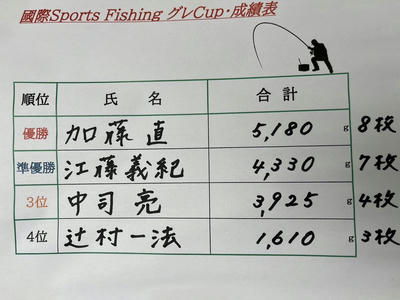 國際Sports Fishing グレCup・成績表
順位 氏 名 合 計
優勝 加藤 直 5,180 g 8枚
準優勝 江藤義紀 4,330 g 7枚
3位 中司 亮 3,925 g 4枚
4位 辻村一法 1,610 g 3枚